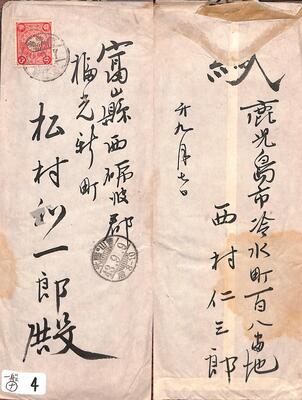 富山縣西礪波郡
福光新町
松村和一郎殿
43.9.9
鹿児島市冷水町百八番地
西村仁三郎
九月七日
4